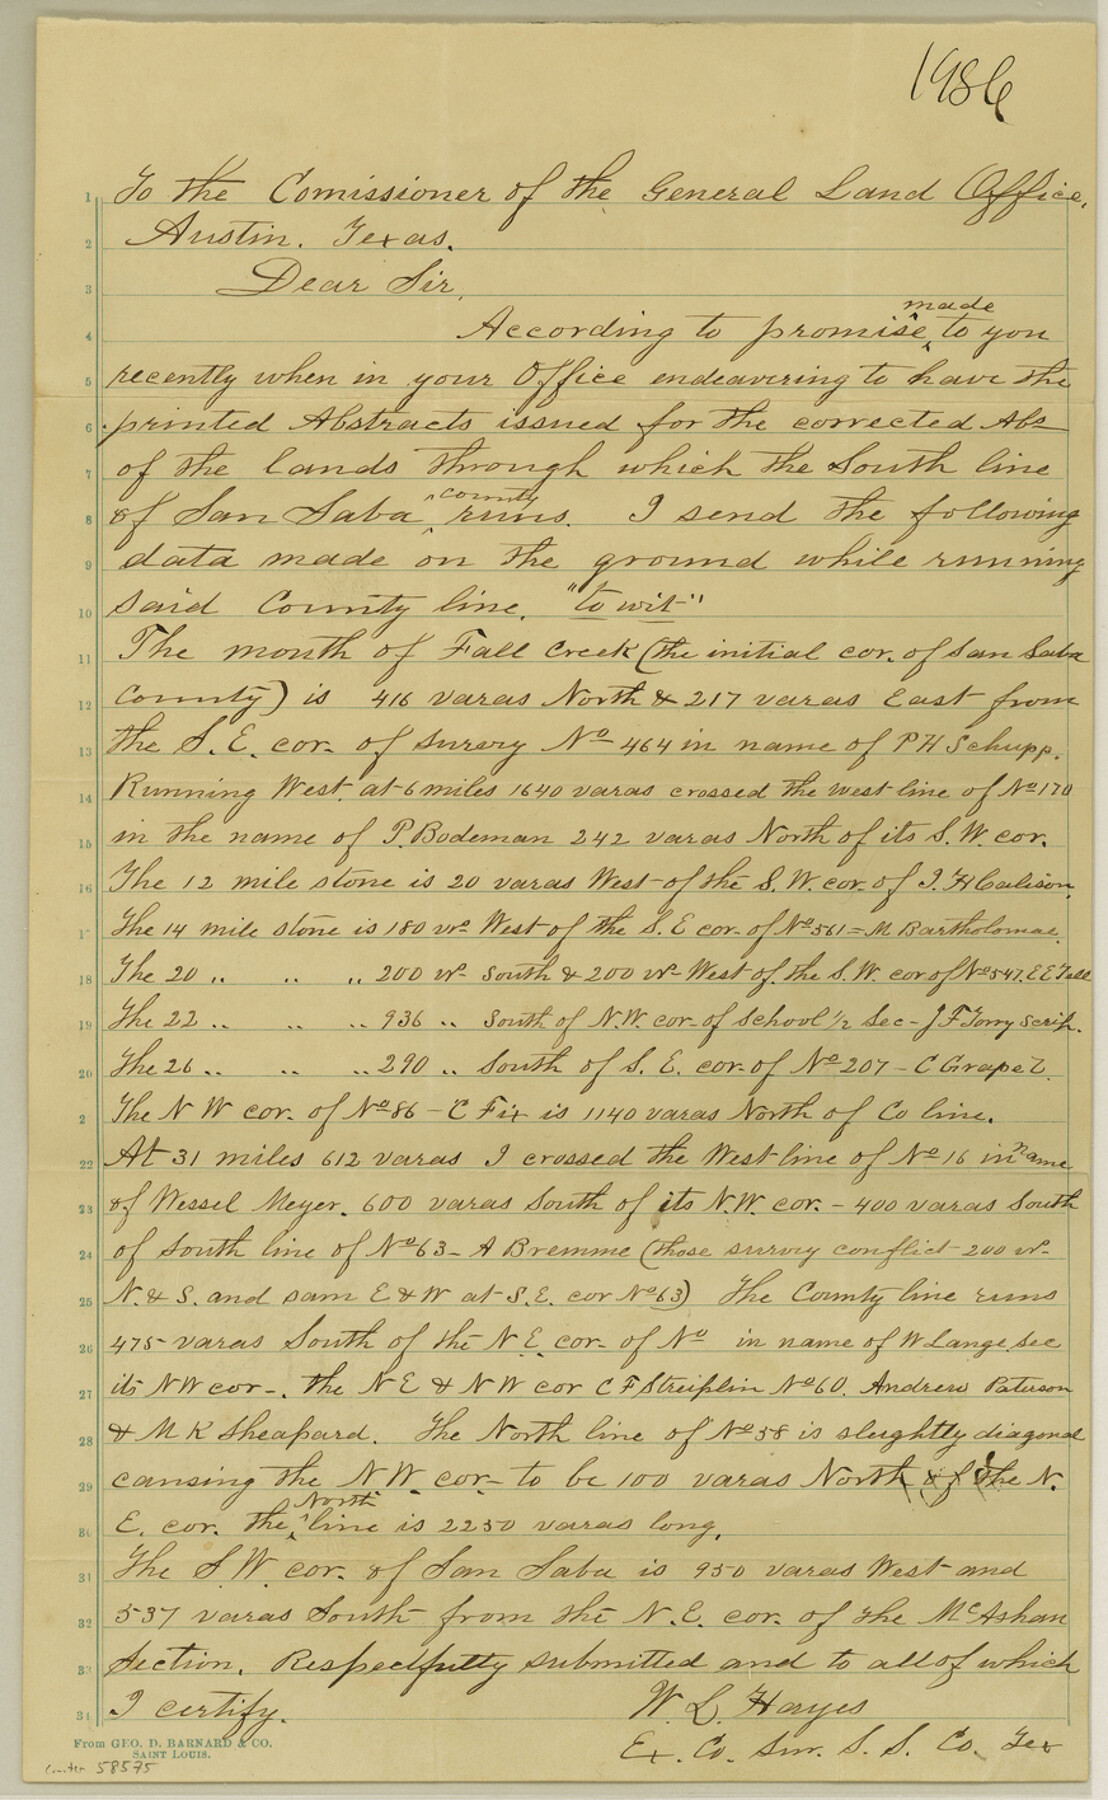 1986
To the Comissioner of the General Land Office,
Austin. Texas.
Dear Sir,
According to promise made to you
recently when in your Office endeavering to have the
printed Abstracts issued for the corrected Abs
of the lands through which the South line
of San Saba county runs. I send the following
data made on the ground while running
said County line. "to wit"
The mouth of Fall Creek (the initial cor. of San Saba
County) is 416 varas North & 217 varas East from
the S. E. cor. of survey No 464 in name of P H Schupp.
Running West. at 6 miles 1640 varas crossed the west line of No 170
in the name of P. Bodeman 242 varas North of its S. W. cor.
The 12 mile stone is 20 varas West of the S. W. cor. of J. H Calison.
The 14 mile stone is 180 vrs West of the S. E cor. of No 561 = M Bartholomae.
The 20 " " " 200 vrs South & 200 vrs West of the S. W. cor of No 547. E E
The 22 " " " 936 " South of N. W. cor. of School 1/2 Sec - J F Torry Scrip.
The 26 " " " 290 " South of S. E. cor. of No 207 - C Grape
The N W cor. of No 86 - C Fix is 1140 varas North of Co line.
At 31 miles 612 varas I crossed the West line of No 16 in name
of Wessel Meyer. 600 varas South of its N. W. cor. - 400 varas South
of South line of No 63 - A Bremme (those survey conflict 200 vrs
N. & S. and sam E & W at S. E. cor No 63) The County line runs
475 varas South of the N. E. cor. of No in name of W Lange. See
its N W cor -. the N E & N W cor C F Streiplin No 60. Andrew Paterson
& M K Sheapard. The North line of No 58 is sleightly diagonal
causing the N. W. cor. to be 100 varas North of the N.
E. cor. the North line is 2250 varas long.
The S. W. cor. of San Saba is 950 varas West and
537 varas South from the N. E. cor. of the McAshan
Section. Respectfully submitted and to all of which
I certify. W. L. Hayes
Ex. Co. Sur. S. S. Co. Tex
1
2
3
4
5
6
7
8
9
10
11
12
13
14
15
16
17
18
19
20
2
22
23
24
25
26
27
28
29
30
31
32
33
34
From GEO. D. BARNARD & CO.
SAINT LOUIS.
counter 58575